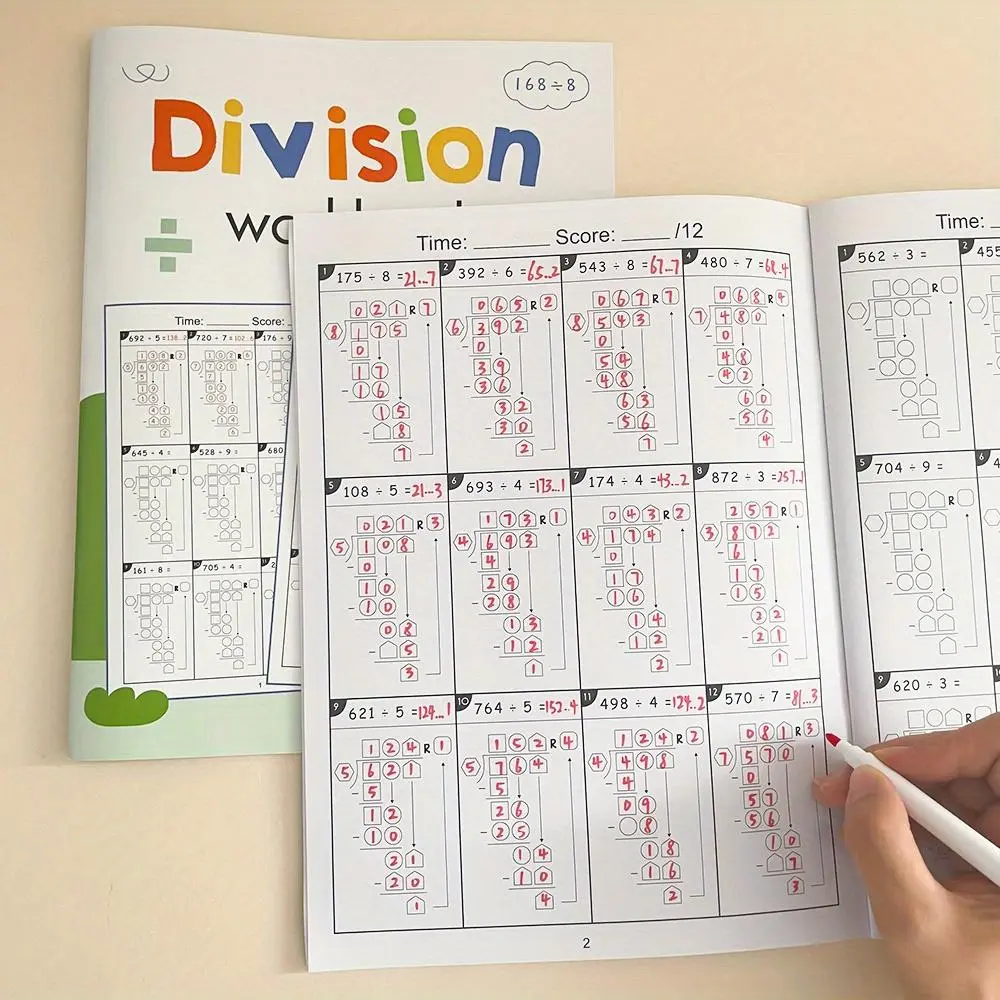 168÷8
Division
Time: Score:
692 ÷ 5 =138...2
720 ÷ 7 =102...6
176 ÷ 9
1 3 8 R 2
1 0 2 R 6
645 ÷ 4 =
528 ÷ 9 =
680
161 ÷ 8 =
705 ÷ 4 =
1
Time: Score: /12
1 175 ÷ 8 =21...7
2 392 ÷ 6 =65..2
3 543 ÷ 8 =67..7
4 480 ÷ 7 =68.4
0 2 1 R 7
0 6 5 R 2
0 6 7 R 7
0 6 8 R 4
8 1 7 5
6 3 9 2
8 5 4 3
7 4 8 0
- 0
- 0
- 0
- 0
1 7
3 9
5 4
4 8
- 1 6
- 3 6
- 4 8
- 4 2
1 5
3 2
6 3
6 0
- 8
- 3 0
- 5 6
- 5 6
7
2
7
4
5 108 ÷ 5 =21...3
6 693 ÷ 4 =173...1
7 174 ÷ 4 =43...2
8 872 ÷ 3 =257..1
0 2 1 R 3
1 7 3 R 1
0 4 3 R 2
2 5 7 R 1
5 1 0 8
4 6 9 3
4 1 7 4
3 8 7 2
- 0
- 4
- 0
- 6
1 0
2 9
1 7
1 7
- 1 0
- 2 8
- 1 6
- 1 5
0 8
1 3
1 4
2 2
- 5
- 1 2
- 1 2
- 2 1
3
1
2
1
9 621 ÷ 5 =124...1
10 764 ÷ 5 =152..4
11 498 ÷ 4 =124..2
12 570 ÷ 7 =81...3
1 2 4 R 1
1 5 2 R 4
1 2 4 R 2
0 8 1 R 3
5 6 2 1
5 7 6 4
4 4 9 8
7 5 7 0
- 5
- 5
- 4
- 0
1 2
2 6
0 9
5 7
- 1 0
- 2 5
- 8
- 5 6
2 1
1 4
1 8
1 0
- 2 0
- 1 0
- 1 6
- 7
1
4
2
3
2
Time:
1 562 ÷ 3 =
2 455
R
5 704 ÷ 9 =
R
9 620 ÷ 3 =
R